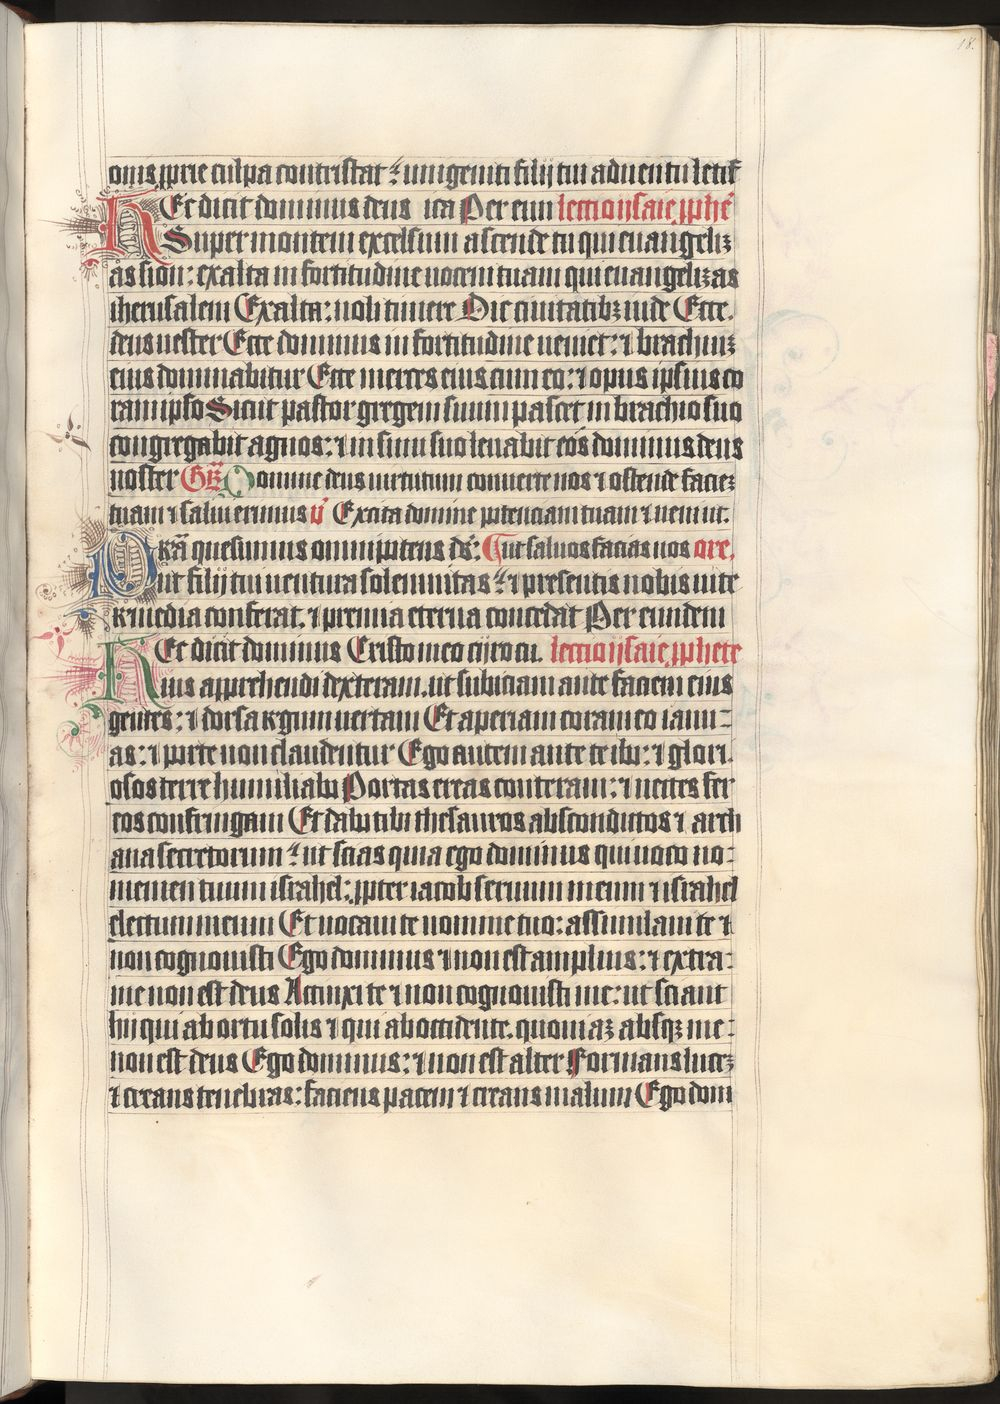 18.
onis pprie culpa contristat: unigeniti filij tui aduentu letif
Et dicit dominus deus ita Per eun lectio ysaie pphe
Super montem excelsum ascende tu qui euangeliz
as sion: exalta in fortitudine uocem tuam qui euangelizas
iherusalem Exalta: noli timere Dic ciuitatibz iude Ecce.
deus uester Ecce dominus in fortitudine ueniet: ⁊ brachiuz
eius dominabitur Ecce merces eius cum eo: ⁊ opus ipsius co
ram ipso Sicut pastor gregem suum pascet in brachio suo
congregabit agnos: ⁊ in sinu suo leuabit eos dominus deus
noster Gr Domine deus uirtutum conuerte nos ⁊ ostende faciez
tuam ⁊ salui erimus v̄ Excita domine potenciam tuam ⁊ ueni ut.
Prā quesumus omnipotens ds: ut saluos facias nos ore.
ut filij tui uentura solemnitas: ⁊ presentis nobis uite
remedia conferat. ⁊ premia eterna concedat Per eundem
Et dicit dominus Cristo meo cyro cu. lectio ysaie pphete
ius apprehendi dexteram. ut subiciam ante faciem eius
gentes: ⁊ dorsa regum uertam Et aperiam coram eo ianu=
as: ⁊ porte non claudentur Ego autem ante te ibo: ⁊ glori
osos terre humiliabo Portas ereas conteram: ⁊ uectes fer
reos confringam Et dabo tibi thesauros absconditos ⁊ arch
ana secretorum: ut scias quia ego dominus qui uoco no=
mem tuum israhel: ppter iacob seruum meum ⁊ israhel
electum meum Et uocaui te nomine tuo: assimilaui te ⁊
non cognouisti Ego dominus ⁊ non est amplius: ⁊ extra=
me non est deus Accinxi te ⁊ non cognouisti me: ut sciant
hij qui ab ortu solis ⁊ qui ab occidente. quoniaz absqz me=
non est deus Ego dominus: ⁊ non est alter Formans lucez
⁊ creans tenebras: faciens pacem ⁊ creans malum Ego dom